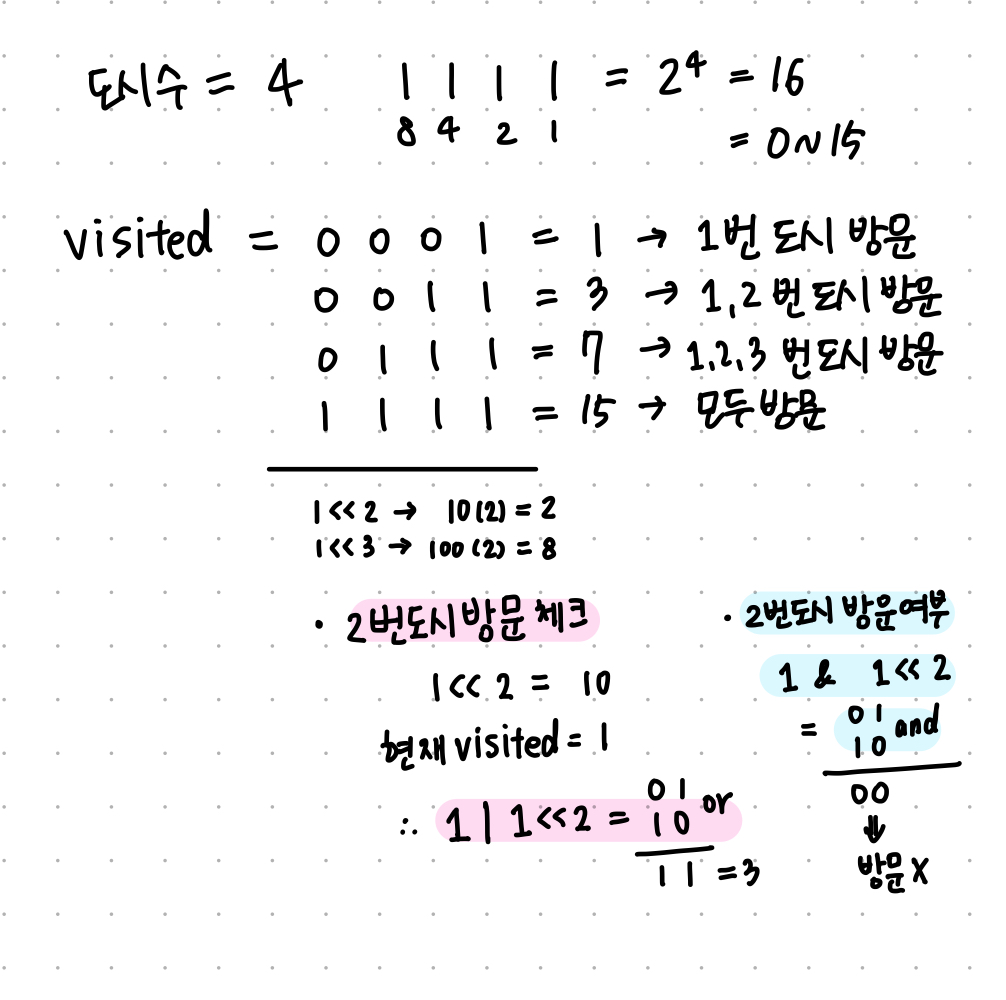 도시수 = 4 1 1 1 1 = 2⁴ = 16
8 4 2 1 = 0~15
visited = 0 0 0 1 = 1 → 1번 도시 방문
0 0 1 1 = 3 → 1,2 번 도시 방문
0 1 1 1 = 7 → 1,2,3 번 도시 방문
1 1 1 1 = 15 → 모두 방문
1<<2 → 10(2) = 2
1<<3 → 100(2) = 8
· 2번도시 방문 체크
1<< 2 = 10
현재 visited = 1
∴ 1 | 1<<2 = 01
10 or
11 = 3
· 2번도시 방문여부
1 & 1<< 2
= 01
10 and
00
⇓
방문 X